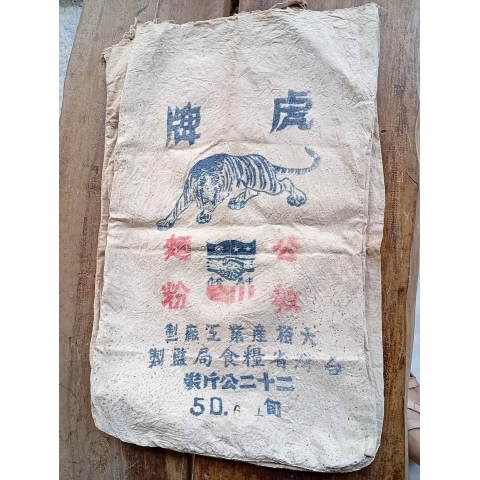 虎牌
公
麵粉
大裕產業工廠製
台灣省糧食局監製
二十二公斤裝
50.6上旬